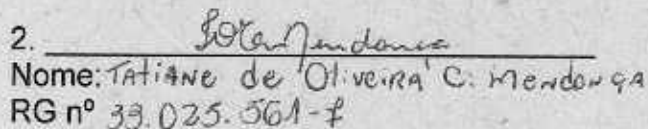 2.
Nome: TAtiANe de OliveiRA C. MendonçA
RG nº 33.025.561-7